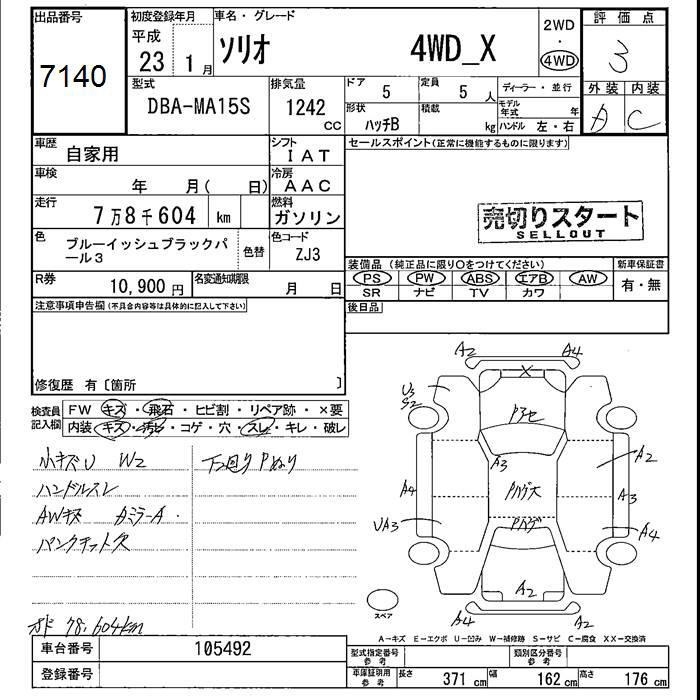 出品番号
7140
初度登録年月
平成
23 1月
車名・グレード
ソリオ 4WD_X
2WD
・
4WD
評価点
3
型式
DBA-MA15S
排気量
1242 cc
ドア
5
定員
5 人
ディーラー・並行
外装 内装
A C
形状
ハッチB
積載
kg
モデル年式 年
ハンドル 左・右
車歴
自家用
シフト
IAT
セールスポイント(正常に機能するものに限ります)
車検
年 月( 日)
冷房
AAC
走行
7万8千604 km
燃料
ガソリン
売切りスタート
SELLOUT
色
ブルーイッシュブラックパール3
色替
色コード
ZJ3
装備品 (純正品に限り○をつけてください)
新車保証書
PS PW ABS エアB AW
有・無
SR ナビ TV カワ
R券
10,900円
名変通知期限
月 日
後日品
注意事項申告欄(不具合内容等は具体的に記入して下さい)
修復歴 有〔箇所 〕
検査員記入欄
FW キズ・飛石・ヒビ割・リペア跡・×要
内装 キズ・汚れ・コゲ・穴・スレ・キレ・破レ
小キズU W2
下回りPぬり
ハンドルスレ
AWキズ 左ミラーA
パンクキット欠
オド 78,604km
A2 A4
U3
S2
X
Pアセ
A3
A2
A4
Pハゲ大
A3
UA3
Pハゲ
A4
A2
スペア
A4 A2
A-キズ E-エクボ U-凹み W-補修跡 S-サビ C-腐食 XX-交換済
車台番号
105492
登録番号
型式指定番号
参考
類別区分番号
参考
車庫証明用
参考
長さ 371 cm
幅 162 cm
高さ 176 cm